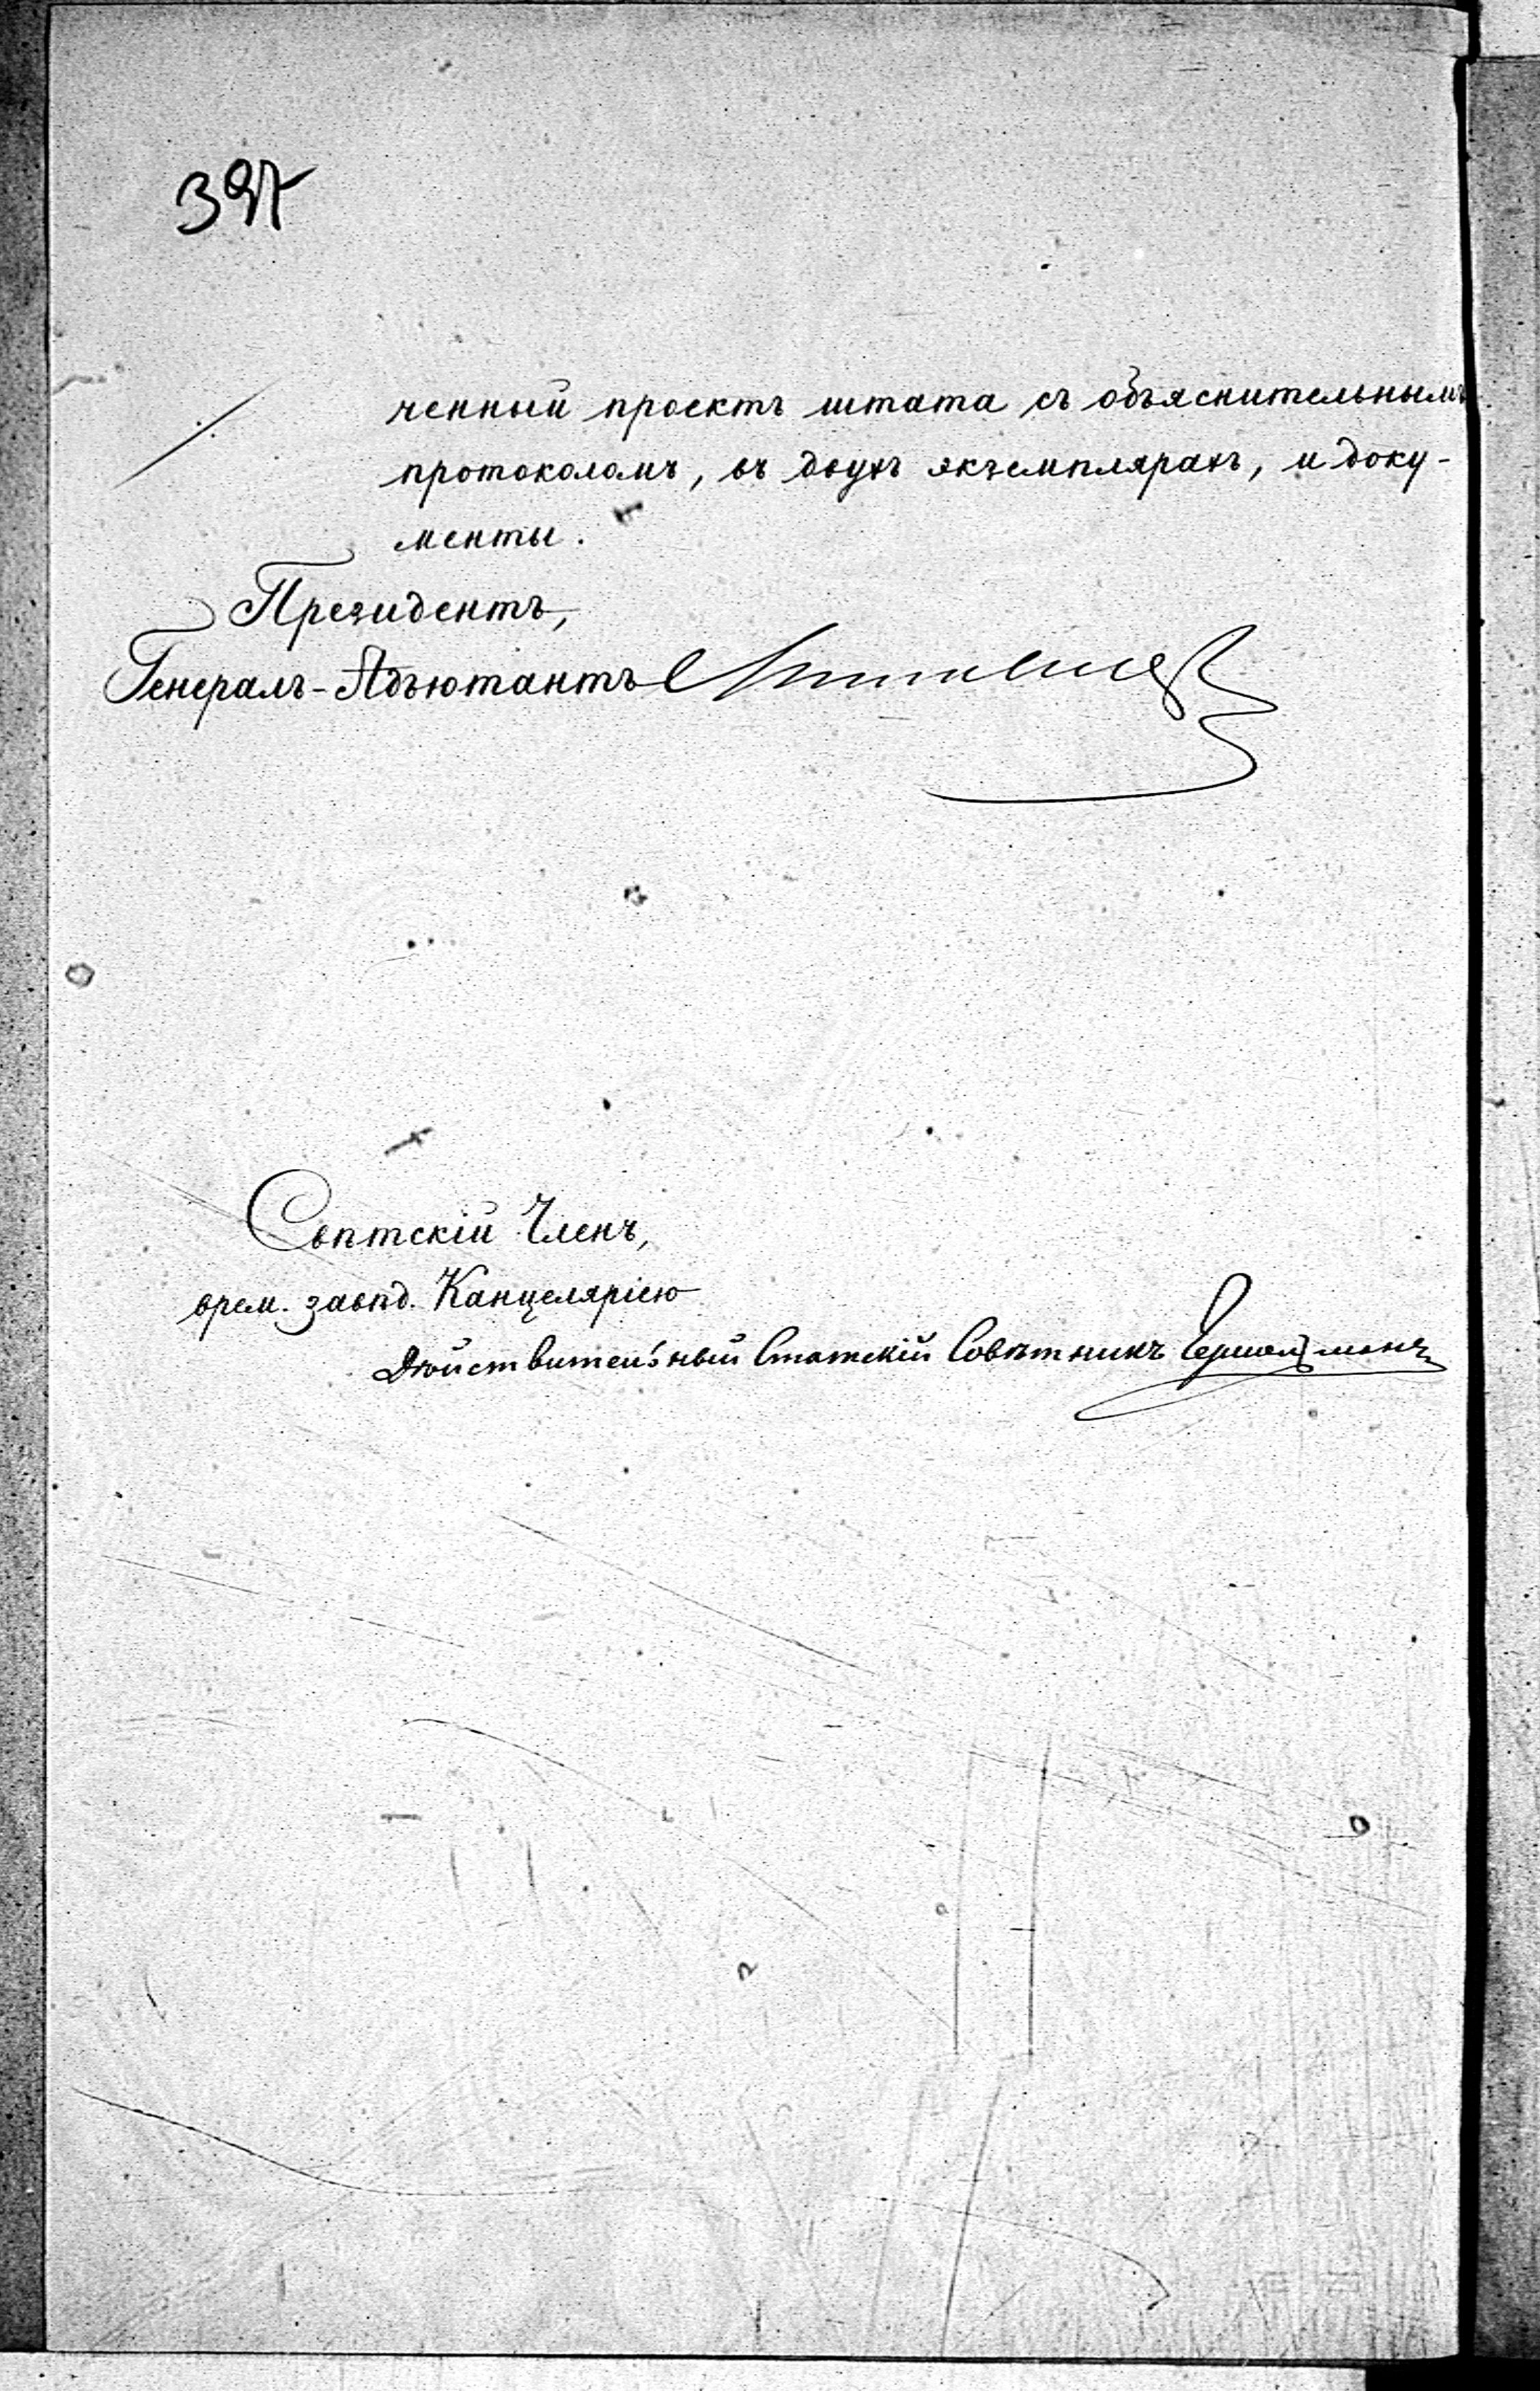 397
ченный проектъ штата съ объяснительнымъ
протоколомъ, въ двухъ экземплярахъ, и доку-
менты.
Президентъ,
Генералъ-Адъютантъ
Свѣтскій Членъ,
врем. завѣд. Канцеляріею
Дѣйствительный Статскій Совѣтникъ